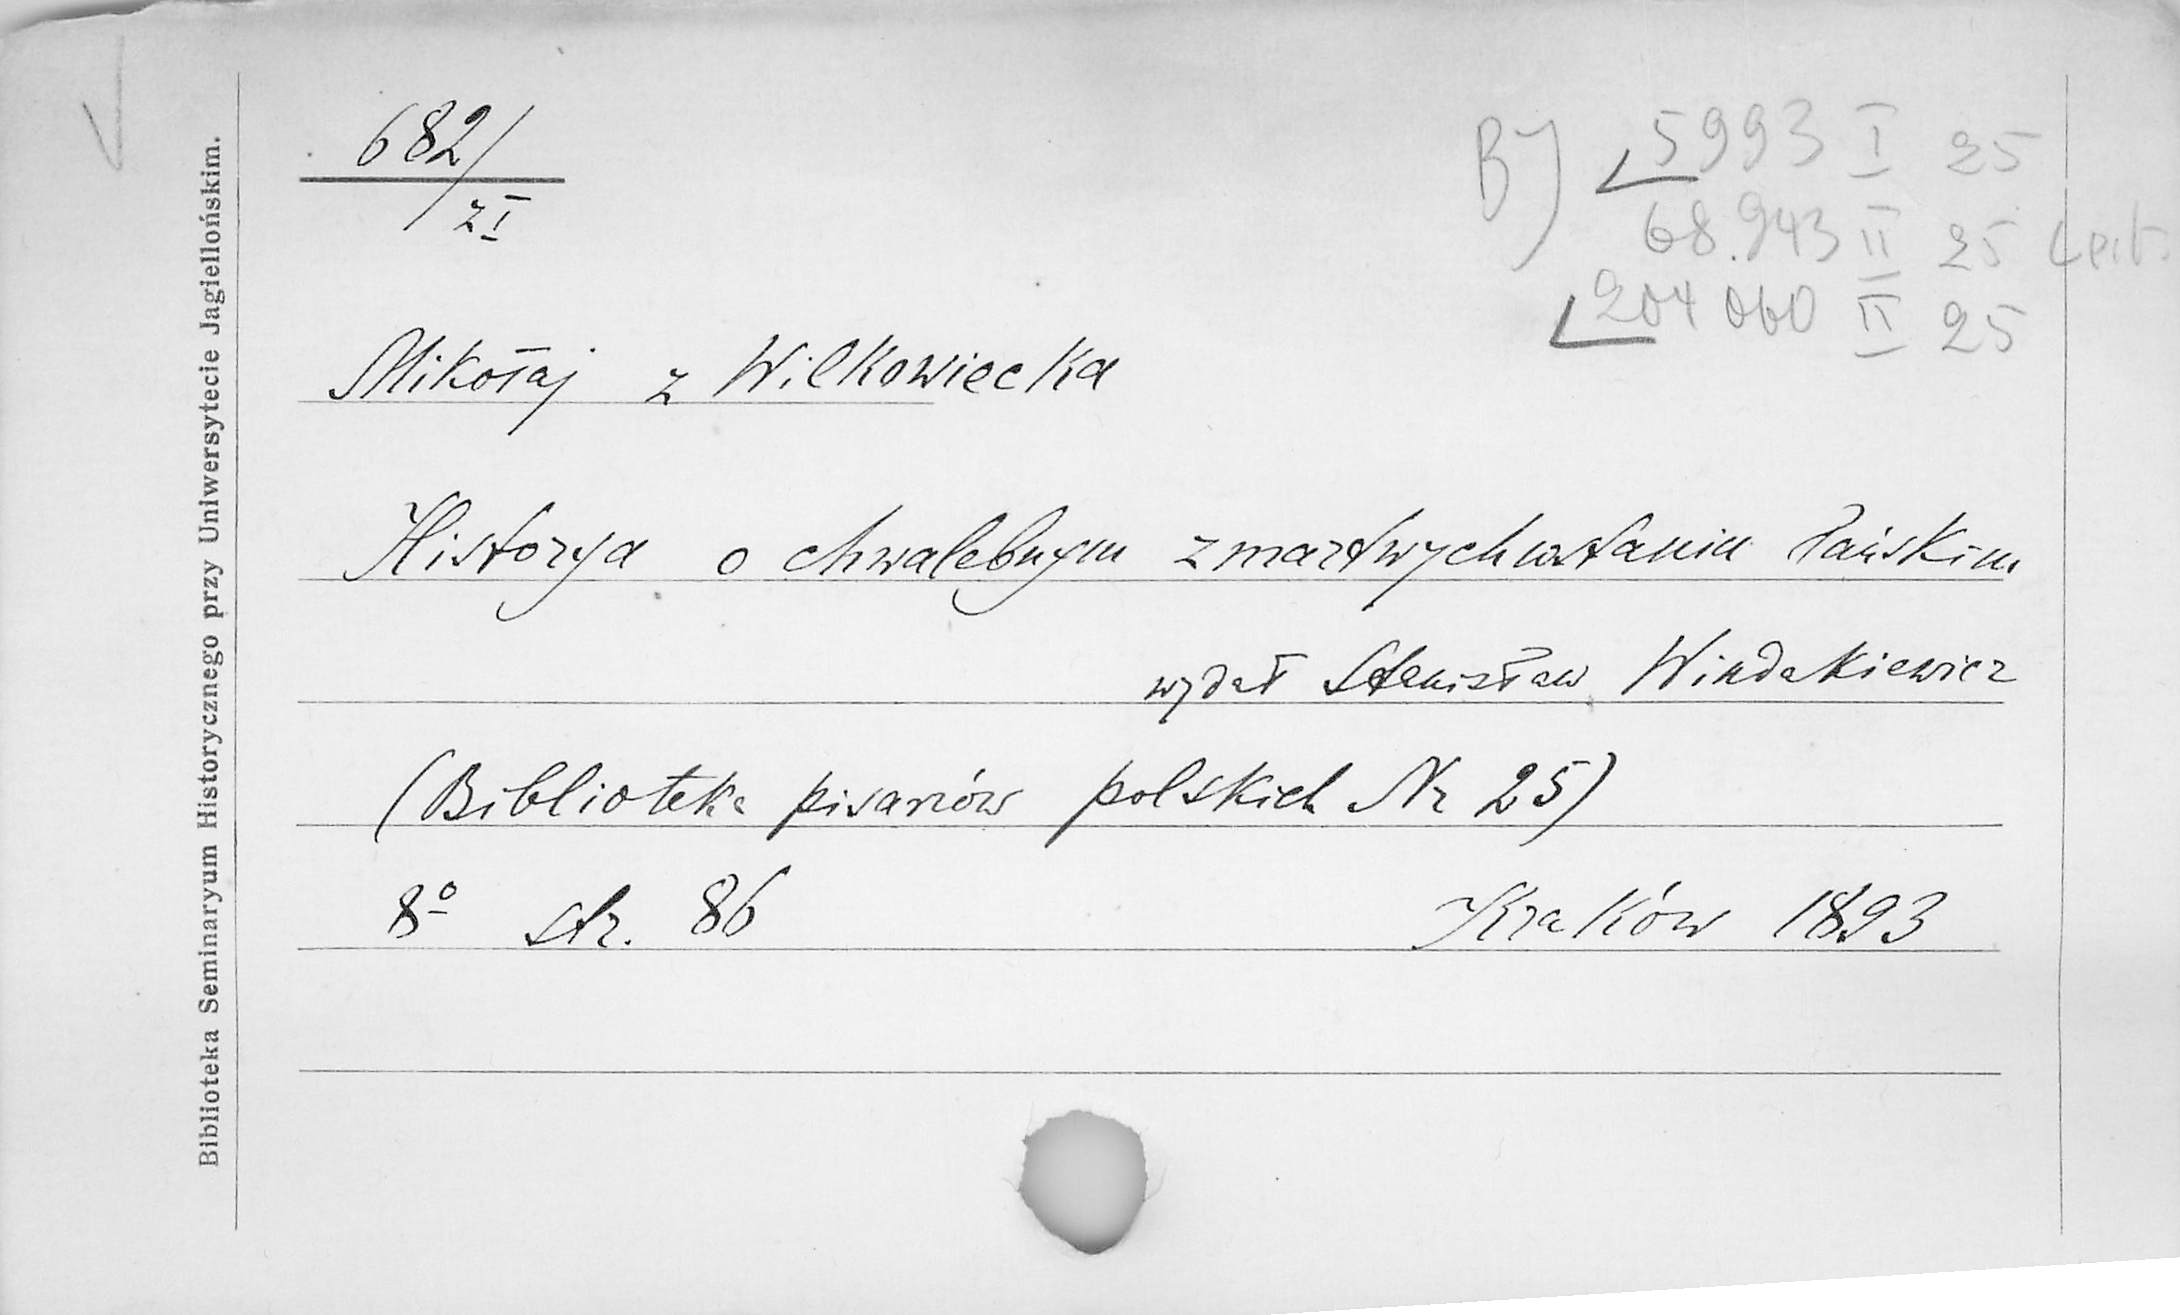 682/
z I
BJ 5993 I 25
68.943 II 25
204 060 II 25
Mikołaj z Wilkowiecka
Historya o chwalebnym zmartwychwstaniu Pańskim
wydał Stanisław Windakiewicz
(Biblioteka pisarzów polskich Nr 25)
8º str. 86 Kraków 1893
Biblioteka Seminaryum Historycznego przy Uniwersytecie Jagiellońskim.